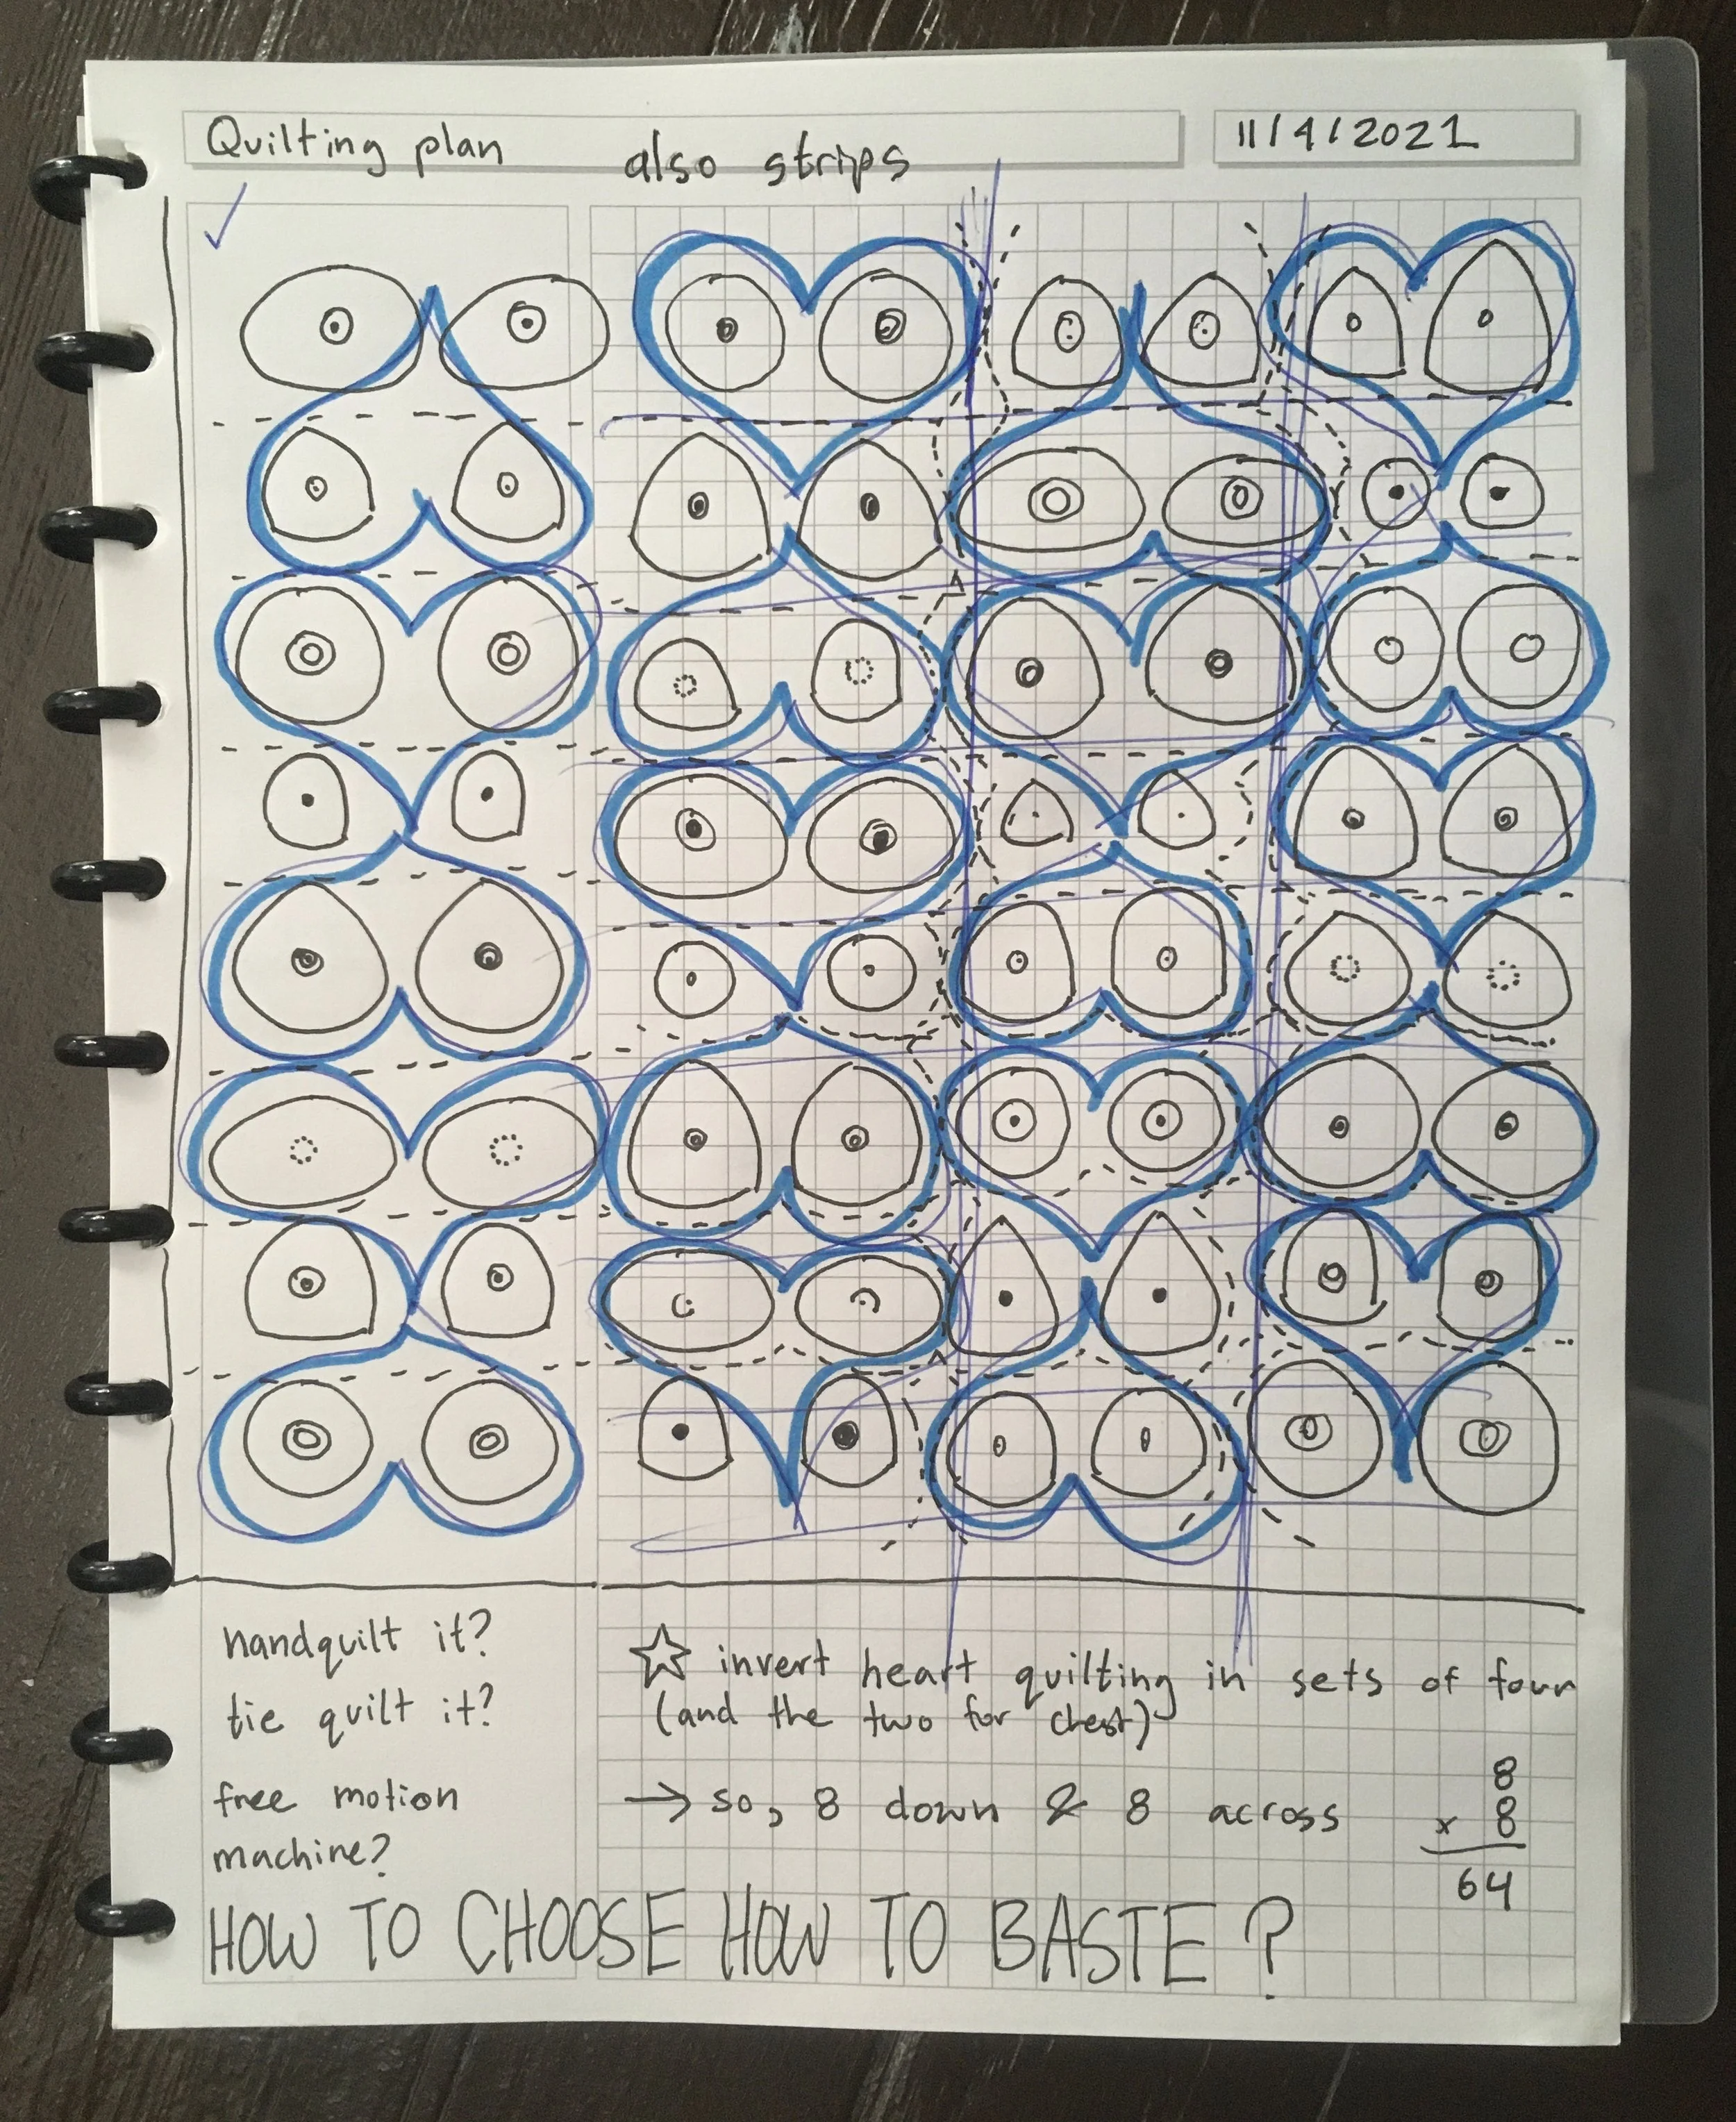 Quilting plan
also strips
11/4/2021
handquilt it?
tie quilt it?
free motion
machine?
☆ invert heart quilting in sets of four
(and the two for chest)
→ so, 8 down & 8 across
8
x 8
64
HOW TO CHOOSE HOW TO BASTE?